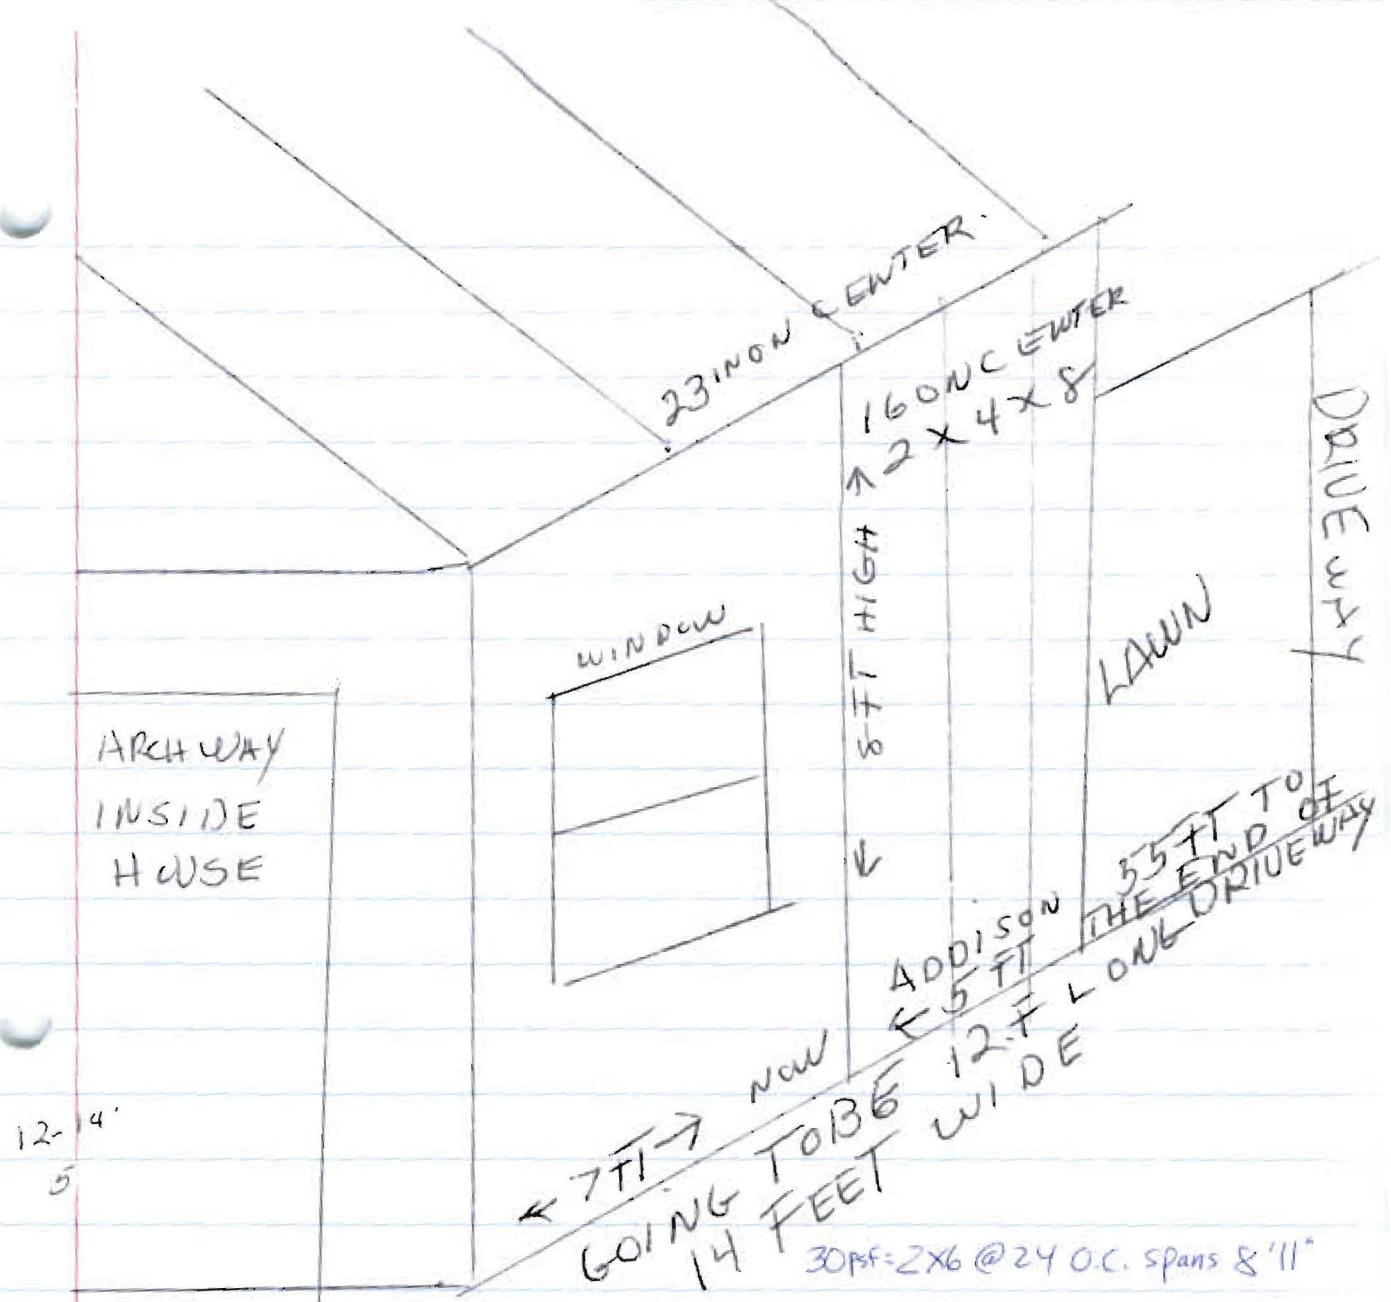 23 IN ON CENTER.
16 ON CENTER
2 X 4 X 8
DRIVEWAY
8 FT HIGH
LAWN
WINDOW
ARCHWAY
INSIDE
HOUSE
ADDISON
5 FT
55 FT TO
THE END OF
DRIVEWAY
NOW
7 FT
GOING TO BE 12 F LONG
14 FEET WIDE
12-14'
5
30psf=2X6 @ 24 O.C. spans 8'11"